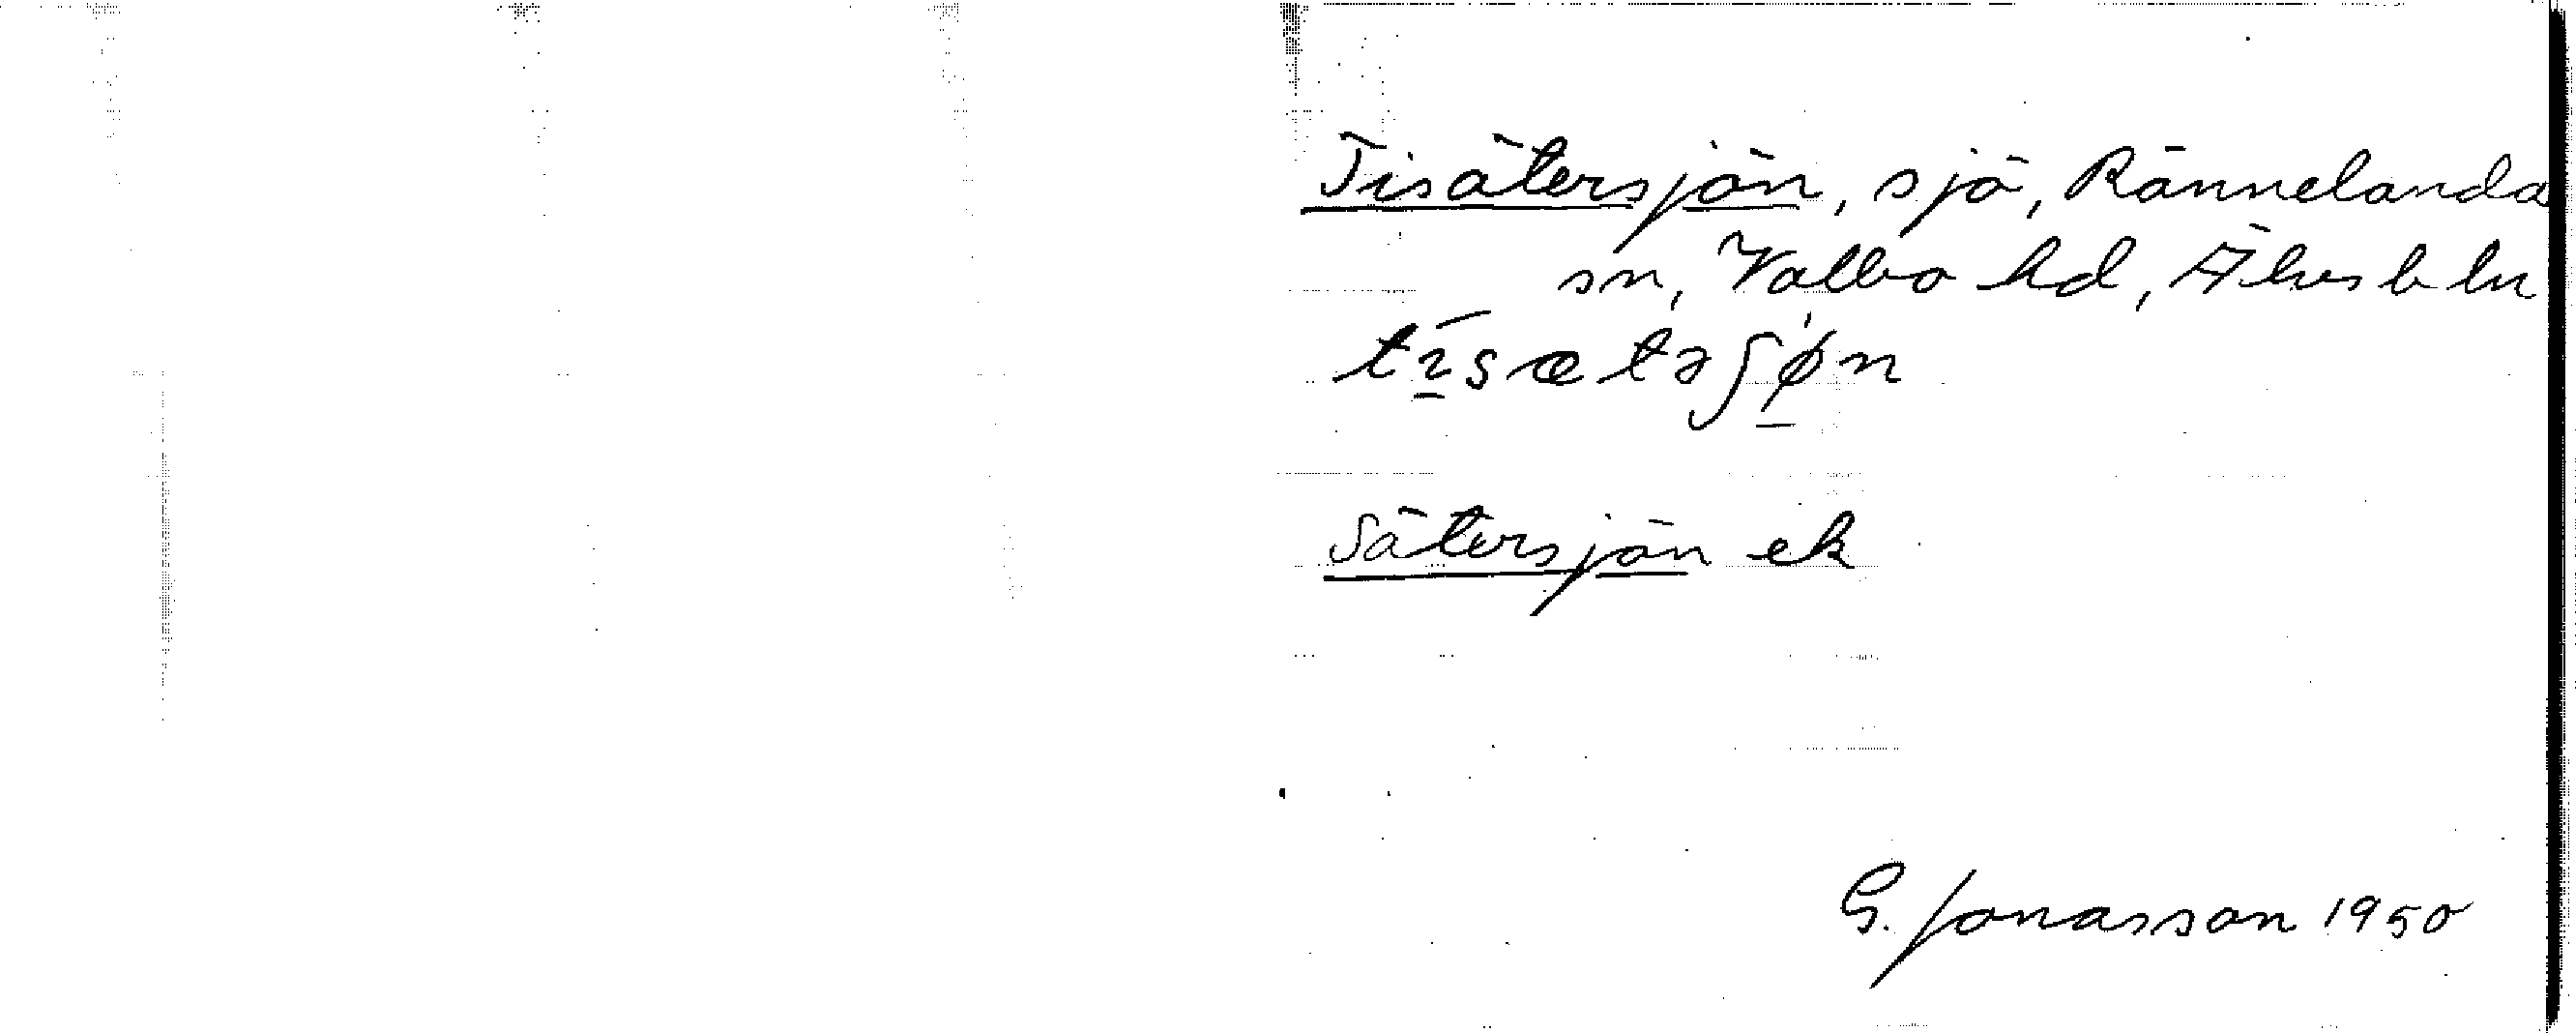 Tisätersjön, sjö, Rännelanda
sn, Valbo hd, Älvsb ln
tɪ̱́sætəʃø̱̀n
Sätersjön ek
G. Jonasson 1950